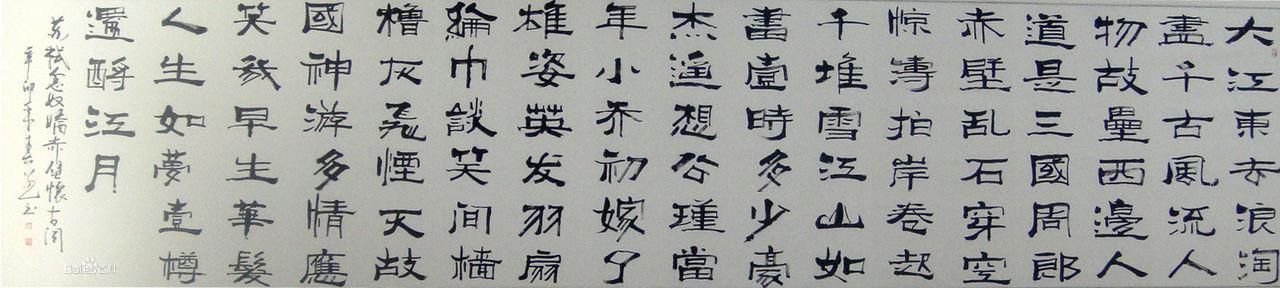 大江東去浪淘
盡千古風流人
物故壘西邊人
道是三國周郎
赤壁乱石穿空
惊濤拍岸卷起
千堆雪江山如
畫壹時多少豪
杰遥想公瑾當
年小乔初嫁了
雄姿英发羽扇
綸巾談笑间檣
櫓灰飛煙灭故
國神游多情應
笑我早生華髮
人生如夢壹樽
還酹江月
苏軾念奴嬌赤壁懷古词
辛卯年春书
Baidu百科